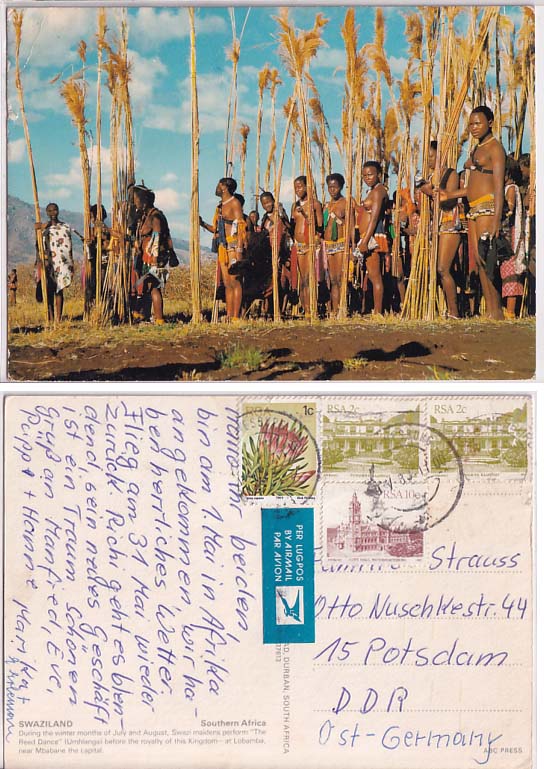 bin am 1 Mai in Afrika
angekommen wir ha-
ben herrliches Wetter.
Flieg am 31 Mai wieder
Zurück. Rudi geht es blen-
dend sein neues Geschäft
ist ein Traum schönen
Gruß an Manfred, Eve,
SWAZILAND
Southern Africa
During the winter months of July and August, Swazi maidens perform "The
Reed Dance" (Umhlanga) before the royalty of this Kingdom – at Lobamba,
near Mbabane the capital.
RSA 1c
RSA 2c
RSA 2c
RSA 10c
PER LUGPOS
BY AIRMAIL
PAR AVION
DURBAN, SOUTH AFRICA
Strauss
Otto Nuschkestr. 44
15 Potsdam
DDR
Ost-Germany
ABC PRESS